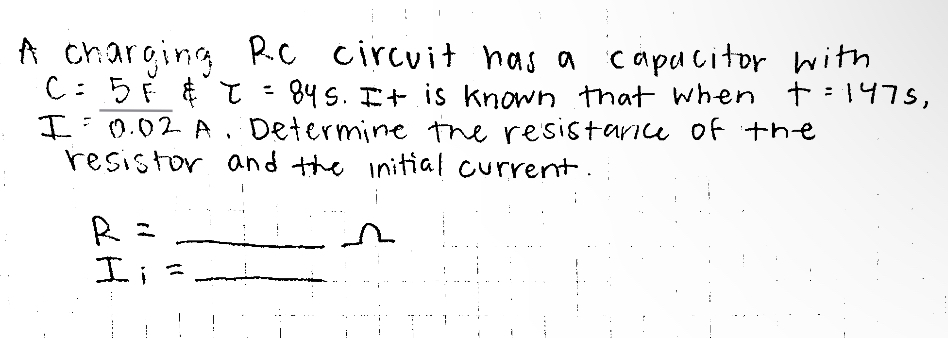 A charging RC circuit has a capacitor with
C = 5 F & τ = 84 s. It is known that when t = 147s,
I = 0.02 A. Determine the resistance of the
resistor and the initial current.
R = ______ Ω
I i = ______